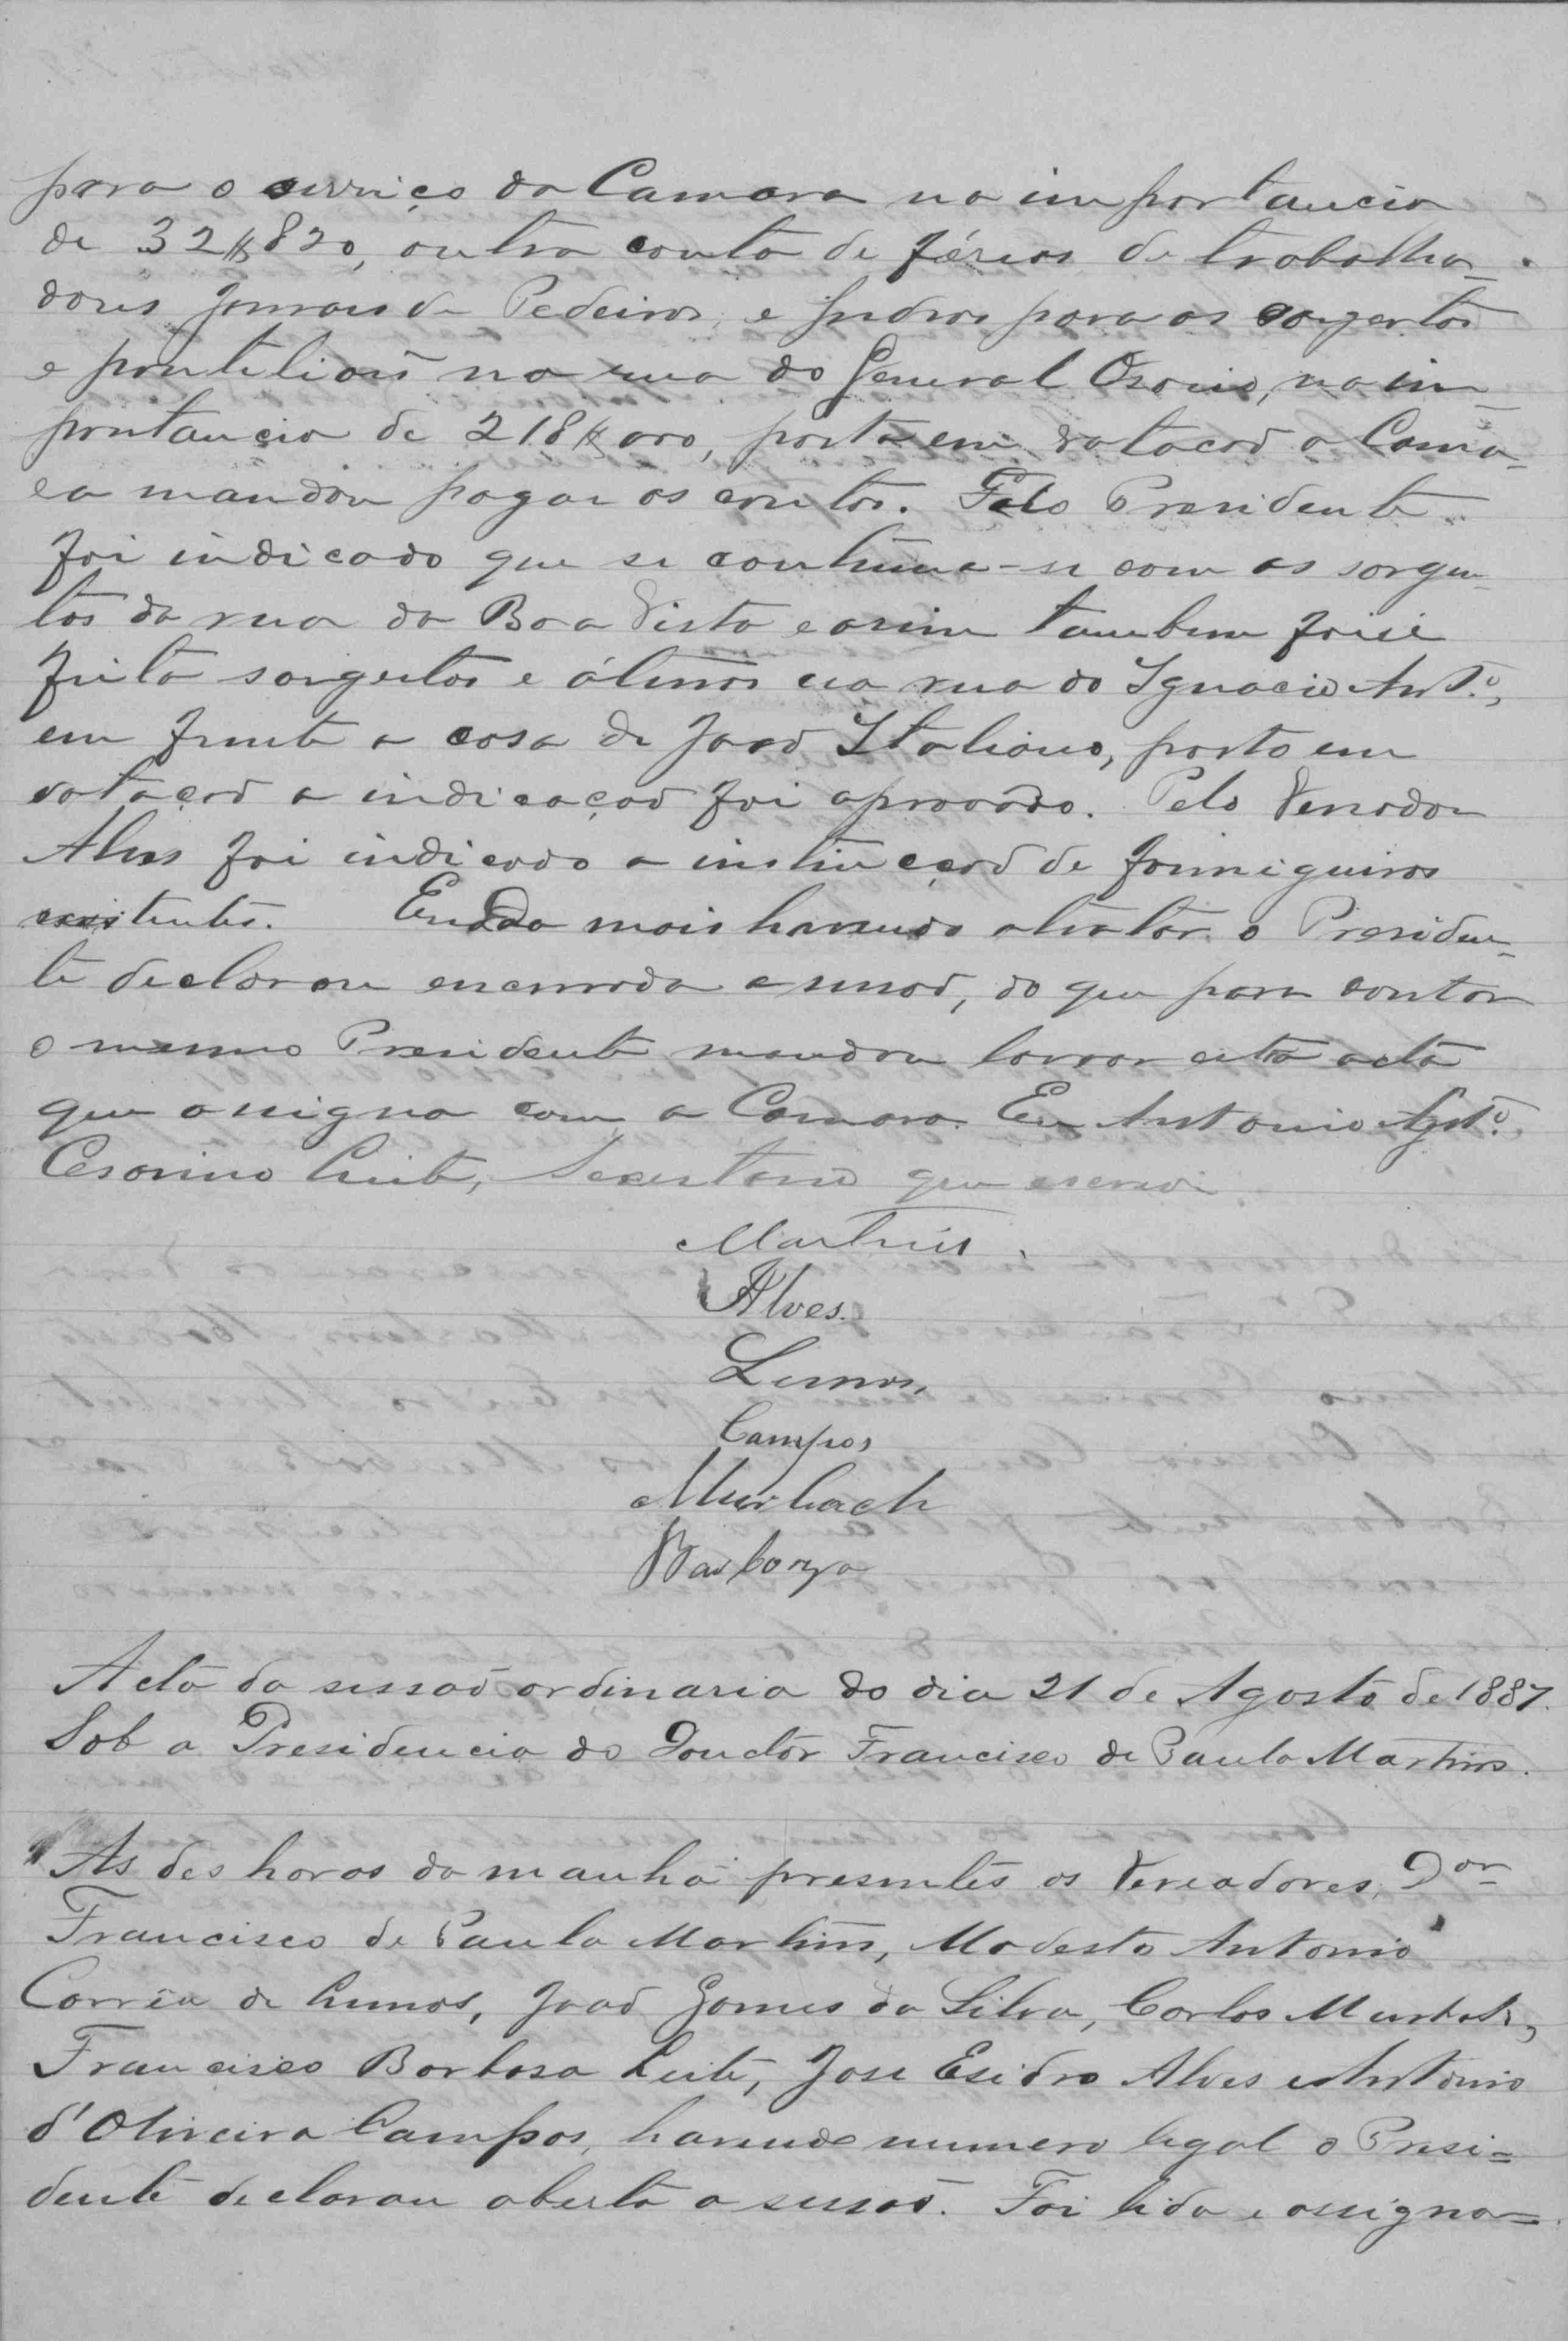 para o serviço da Camara na importancia
de 32$820, outra conta de férias de trabalha-
dores jornais de Pedeiros, e pedras para os sorgertos
e pontilioẽs na rua do General Osorio, na im-
portancia de 218$000, posta em votacaõ a Cama-
ra mandou pagar as contas. Pelo Presidente
foi indicado que se continua-se com os sorger-
tos da rua da Boa Vista e assim tambem foise
feito sorgertos e átirros na rua do Ignacio Antº,
em frente a casa de Joaõ Italiano, posto em
votaçaõ a indicaçaõ foi aprovado. Pelo Veriador
Alves foi indicado a instinçaõ de formigueiros
existentes. E nada mais havendo atratar o Presiden-
te declarou encerrada a sessaõ, do que para constar
o mesmo Presidente mandou lavrar esta acta
que assigna com a Camara. Eu Antonio Agstº
Cesarino Leite, Secretario que escrevi
Martins.
Alves.
Lemos,
Campos
Murbach
Barboza
Acta da sessaõ ordinaria do dia 21 de Agosto de 1887.
Sob a Presidencia do Doutor Francisco de Paula Martins.
As des horas da manhã presentes os Vereadores, Dor
Francisco de Paula Martins, Modesto Antonio
Corrêa de Lemos, Joaõ Gomes da Silva, Carlos Murbach,
Francisco Barbosa Leite, Jose Esidro Alves e Antonio
d'Oliveira Campos, havendo numero legal o Presi=
dente declarou aberta a sessaõ. Foi lida e assigna=